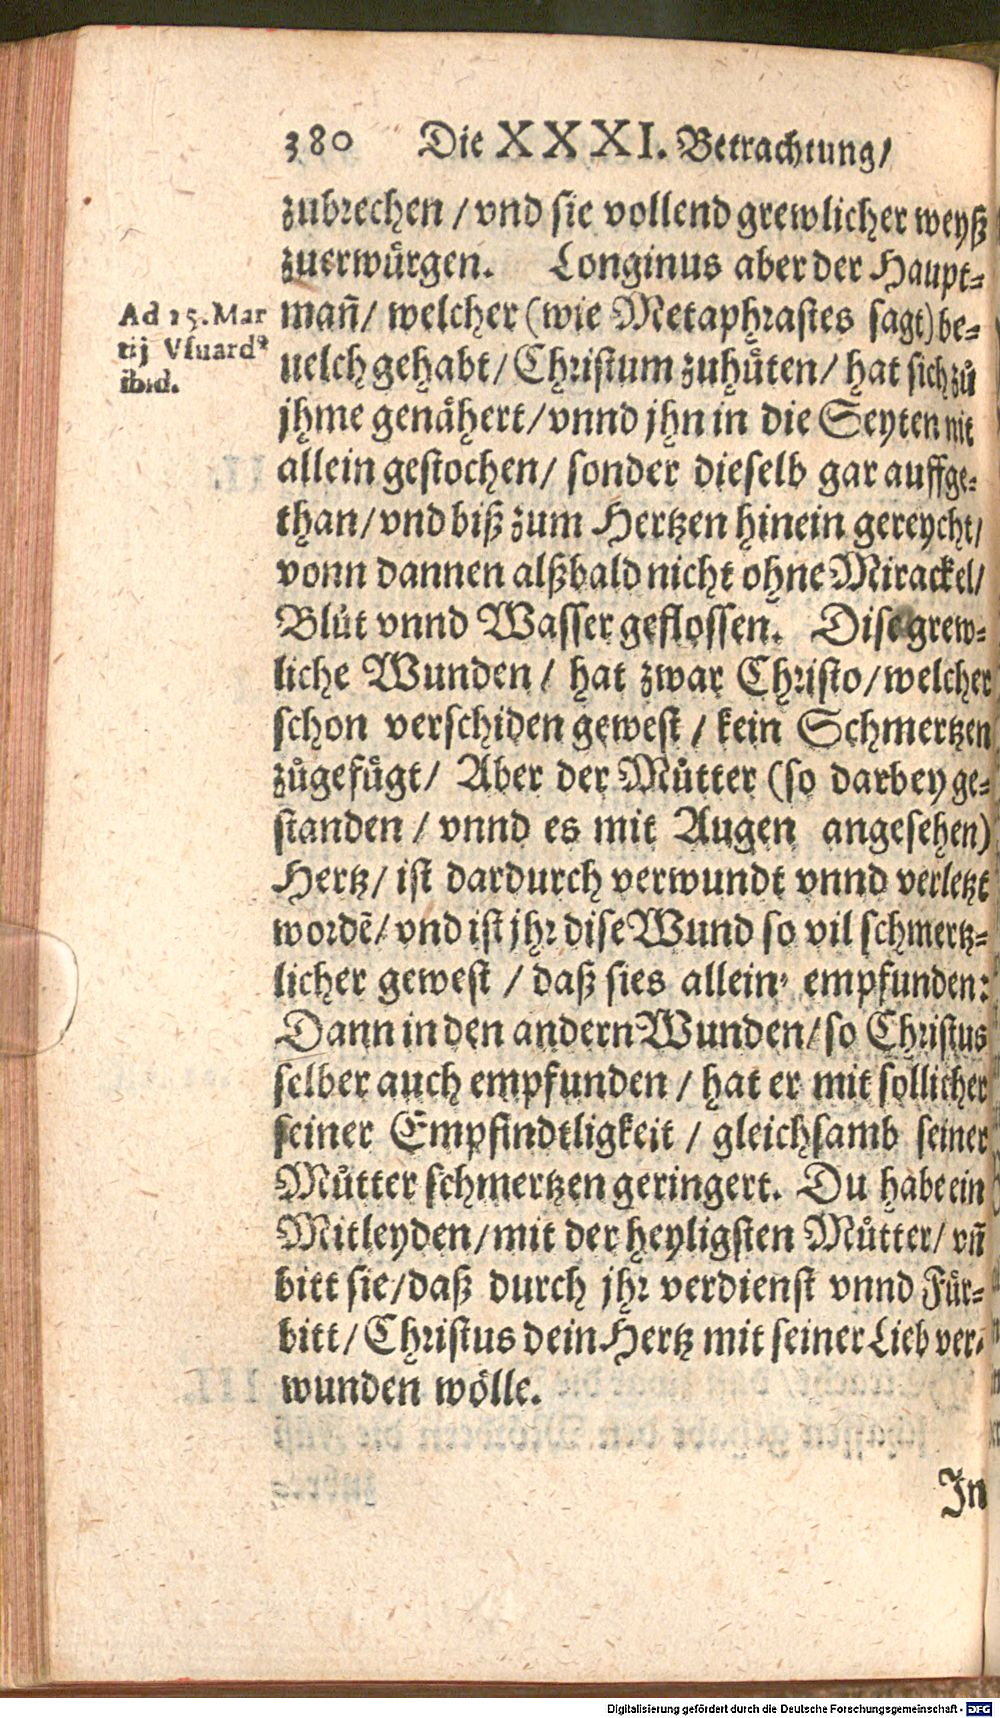 380 Die XXXI. Betrachtung/
zubrechen / vnd sie vollend grewlicher weyß
zuerwürgen. Longinus aber der Haupt-
mañ/ welcher (wie Metaphrastes sagt) be-
uelch gehabt/ Christum zuhüten/ hat sich zů
jhme genähert/ vnnd jhn in die Seyten nit
allein gestochen/ sonder dieselb gar auffge-
than/ vnd biß zum Hertzen hinein gereycht/
vonn dannen alßbald nicht ohne Mirackel/
Blůt vnnd Wasser geflossen. Dise grew-
liche Wunden / hat zwar Christo/ welcher
schon verschiden gewest / kein Schmertzen
zůgefügt/ Aber der Můtter (so darbey ge-
standen / vnnd es mit Augen angesehen)
Hertz/ ist dardurch verwundt vnnd verletzt
wordẽ/ vnd ist jhr dise Wund so vil schmertz-
licher gewest / daß sies allein empfunden:
Dann in den andern Wunden/ so Christus
selber auch empfunden / hat er mit söllicher
seiner Empfindtligkeit / gleichsamb seiner
Můtter schmertzen geringert. Du habe ein
Mitleyden/ mit der heyligsten Můtter/ vñ
bitt sie/ daß durch jhr verdienst vnnd Für-
bitt/ Christus dein Hertz mit seiner Lieb ver-
wunden wölle.
In
Ad 15. Mar
tij Vsuardꝰ
ibid.
Digitalisierung gefördert durch die Deutsche Forschungsgemeinschaft - DFG